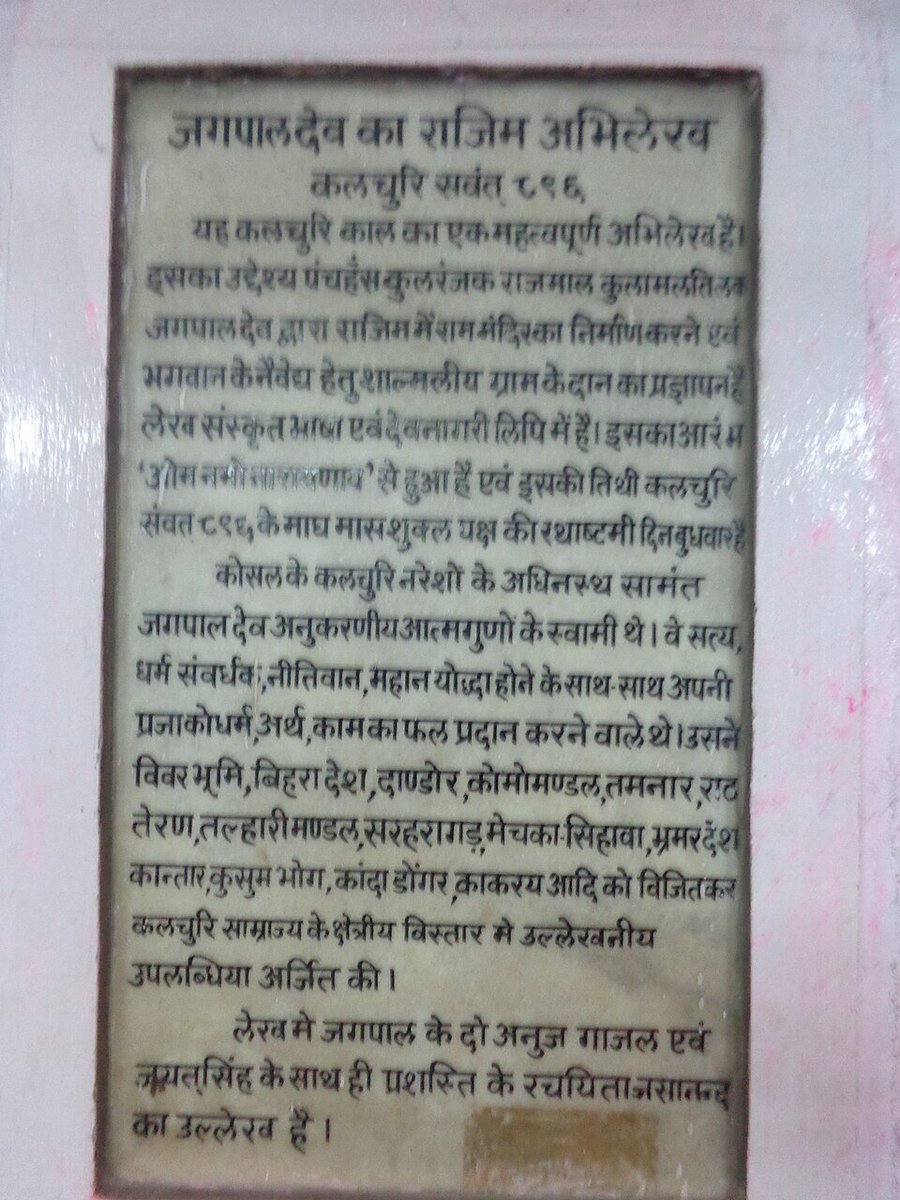 जगपालदेव का राजिम अभिलेख
कलचुरि सवंत् ८९६
यह कलचुरि काल का एक महत्वपूर्ण अभिलेख है।
इसका उद्देश्य पंचहँस कुलरंजक राजमाल कुलामलतिलक
जगपालदेव द्वारा राजिम में राम मंदिर का निर्माण करने एवं
भगवान के नैवेद्य हेतु शाल्मलीय ग्राम के दान का प्रज्ञापन है
लेख संस्कृत भाषा एवं देवनागरी लिपि में है। इसका आरंभ
'ओम नमो नारायणाय' से हुआ है एवं इसकी तिथी कलचुरि
संवत ८९६ के माघ मास शुक्ल पक्ष की रथाष्टमी दिन बुधवार है
कोसल के कलचुरि नरेशो के अधिनस्थ सामंत
जगपाल देव अनुकरणीय आत्मगुणो के स्वामी थे। वे सत्य,
धर्म संवर्धक, नीतिवान, महान योद्धा होने के साथ-साथ अपनी
प्रजा को धर्म, अर्थ, काम का फल प्रदान करने वाले थे। उसने
विवर भूमि, बिहरा देश, दाण्डोर, कोमोमण्डल, तमनार, राठ
तेरण, तल्हारी मण्डल, सरहरागड़, मेचका-सिहावा, भ्रमरदेश
कान्तार, कुसुम भोग, कांदा डोंगर, काकरय आदि को विजित कर
कलचुरि साम्राज्य के क्षेत्रीय विस्तार मे उल्लेखनीय
उपलब्धिया अर्जित की।
लेख मे जगपाल के दो अनुज गाजल एवं
जयतसिंह के साथ ही प्रशस्ति के रचयिता जसानन्द
का उल्लेख है।